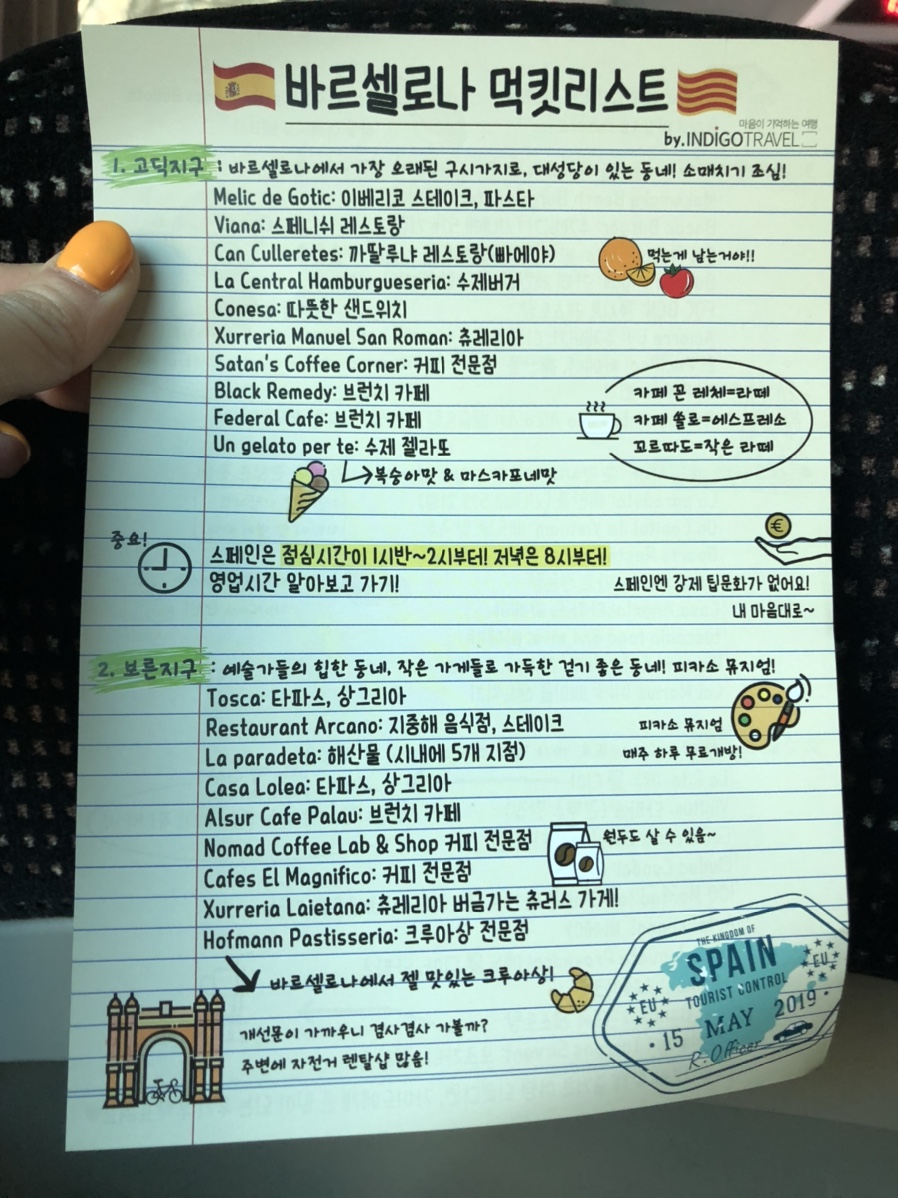 바르셀로나 먹킷리스트
마음이 기억하는 여행
by.INDIGOTRAVEL
1. 고딕지구 : 바르셀로나에서 가장 오래된 구시가지로, 대성당이 있는 동네! 소매치기 조심!
Melic de Gotic: 이베리코 스테이크, 파스타
Viana: 스페니쉬 레스토랑
Can Culleretes: 까딸루냐 레스토랑(빠에야)
먹는게 남는거야!!
La Central Hamburgueseria: 수제버거
Conesa: 따뜻한 샌드위치
Xurreria Manuel San Roman: 츄레리아
Satan's Coffee Corner: 커피 전문점
Black Remedy: 브런치 카페
Federal Cafe: 브런치 카페
Un gelato per te: 수제 젤라또
복숭아맛 & 마스카포네맛
카페 꼰 레체=라떼
카페 쏠로=에스프레소
꼬르따도=작은 라떼
중요!
스페인은 점심시간이 1시반~2시부터! 저녁은 8시부터!
영업시간 알아보고 가기!
스페인엔 강제 팁문화가 없어요!
내 마음대로~
2. 보른지구 : 예술가들의 힙한 동네, 작은 가게들로 가득한 걷기 좋은 동네! 피카소 뮤지엄!
Tosca: 타파스, 상그리아
Restaurant Arcano: 지중해 음식점, 스테이크
La paradeta: 해산물 (시내에 5개 지점)
피카소 뮤지엄
매주 하루 무료개방!
Casa Lolea: 타파스, 상그리아
Alsur Cafe Palau: 브런치 카페
Nomad Coffee Lab & Shop 커피 전문점
원두도 살 수 있음~
Cafes El Magnifico: 커피 전문점
Xurreria Laietana: 츄레리아 버금가는 츄러스 가게!
Hofmann Pastisseria: 크루아상 전문점
바르셀로나에서 젤 맛있는 크루아상!
개선문이 가까우니 겸사겸사 가볼까?
주변에 자전거 렌탈샵 많음!
THE KINGDOM OF
SPAIN
TOURIST CONTROL
EU
EU
· 15 MAY 2019 ·
R.Officer